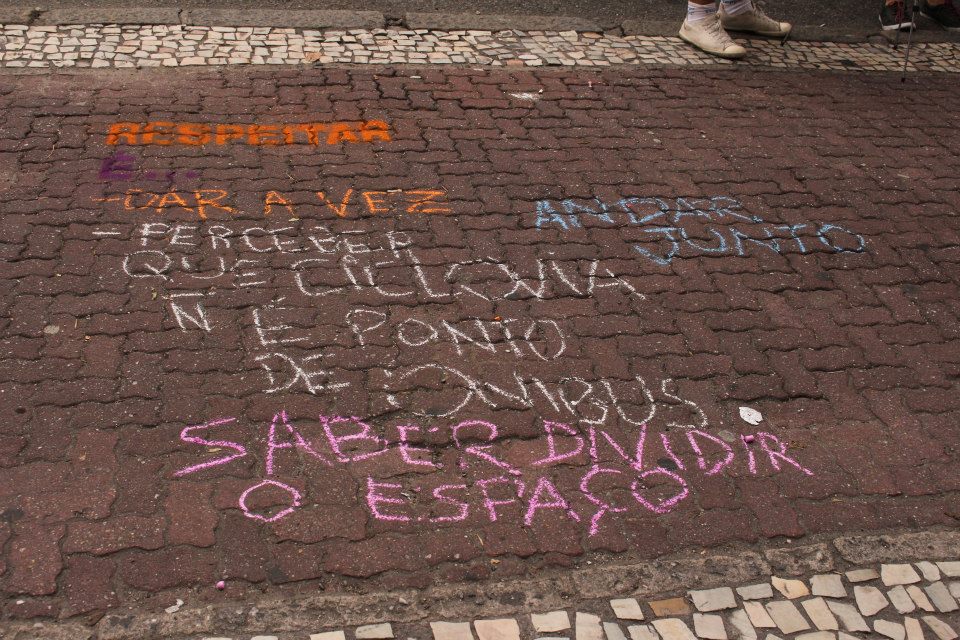 RESPEITAR
É...
-DAR A VEZ
- PERCEBER
QUE CICLOVIA
Ñ É PONTO
DE ÔNIBUS
ANDAR
JUNTO
SABER DIVIDIR
O ESPAÇO